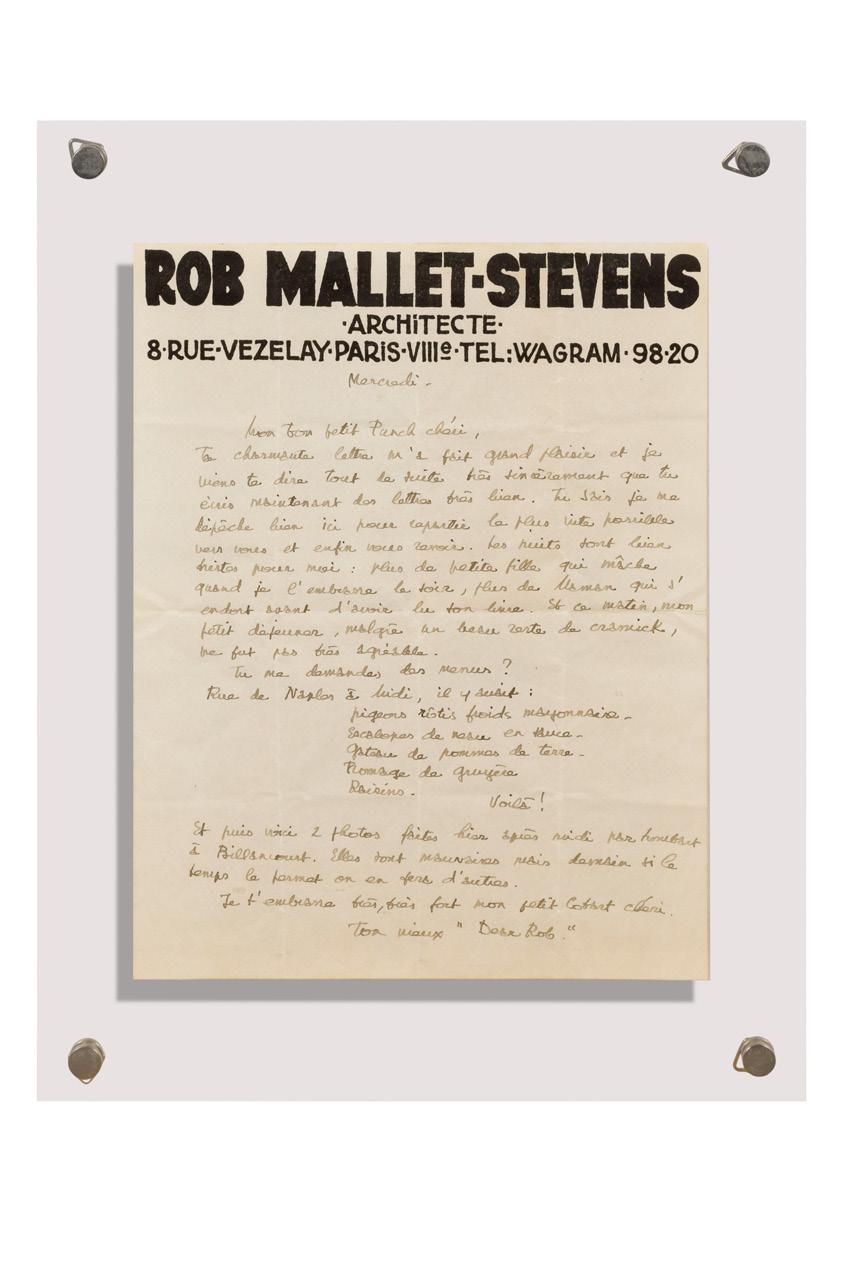 ROB MALLET-STEVENS
·ARCHiTECTE·
8·RUE·VEZELAY·PARiS·VIIIe·TEL:WAGRAM·98·20
Mercredi -
Mon bon petit Punch chéri,
Ta charmante lettre m'a fait grand plaisir et je
viens te dire tout de suite très sincèrement que tu
écris maintenant des lettres très bien. Tu sais je me
dépêche bien ici pour repartir le plus vite possible
vers vous et enfin vous revoir. Les nuits sont bien
tristes pour moi : plus de petite fille qui mâche
quand je l'embrasse le soir, plus de Maman qui s'
endort avant d'avoir lu son livre. Et ce matin, mon
petit déjeuner, malgré un beau reste de cramick,
ne fut pas très agréable.
Tu me demandes des menus ?
Rue de Naples à midi, il y avait :
pigeons rôtis froids mayonnaise -
Escalopes de veau en sauce -
Gateau de pommes de terre -
Fromage de gruyère
Raisins -
Voilà !
Et puis voici 2 photos faites hier après midi par
à Billancourt. Elles sont mauvaises mais demain si le
temps le permet on en fera d'autres.
Je t'embrasse très, très fort mon petit chéri.
Ton vieux " Dear Rob "